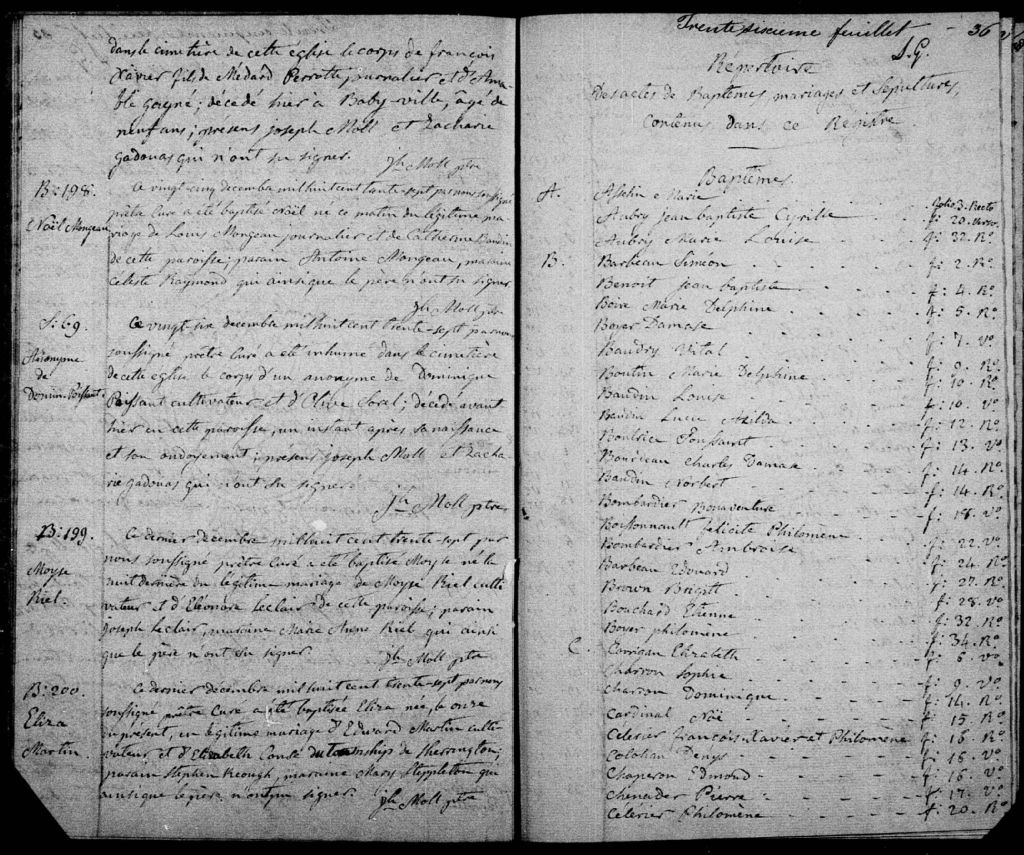 dans le cimetière de cette eglise le corps de françois
Xavier fils de Médard Perrotte journalier et d'Ama-
ble gagné; décédé hier à Baby-ville, âgé de
neuf ans; présens joseph Moll et Zacharie
gadouas qui n'ont su signer.
jh Moll ptre
B:198.
Noël Mongeau
Ce vingt-cinq decembre mil huit cent trente-sept par nous soussigné
prêtre Curé a été baptisé Noël né ce matin du légitime ma-
riage de Louis Mongeau journalier et de Catherine Baudin
de cette paroisse; parain Antoine Mongeau, maraine
Celeste Raymond qui ainsi que le père n'ont su signer
Jh Moll ptre
S:69.
Anonyme
de
Domin. Poissant.
Ce vingt-six decembre mil huit cent trente-sept par nous
soussigné prêtre Curé a été inhumé dans le cimetière
de cette eglise le corps d'un anonyme de Dominique
Poissant cultivateur et d'Olive Sorel; décédé avant
hier en cette paroisse, un instant après sa naissance
et son ondoyement; présens joseph Moll et Zacha-
rie gadouas qui n'ont su signer.
Jh Moll ptre
B:199.
Moyse
Riel.
Ce dernier decembre mil huit cent trente-sept par
nous soussigné prêtre Curé a été baptisé Moyse né la
nuit derniere du légitime mariage de Moyse Riel culti-
vateur et d'Eléonore Leclair de cette paroisse; parain
joseph Leclair, maraine Marie Anne Riel qui ainsi
que le père n'ont su signer.
jh Moll ptre
B:200.
Eliza
Martin.
Ce dernier decembre mil huit cent trente-sept par nous
soussigné prêtre Curé a été baptisée Eliza née, le onze
du présent, en légitime mariage d'Edward Martin culti-
vateur et d'Elizabeth du township de Sherrington;
parain Stephen Keough, maraine Mary Steppleton qui
ainsi que le père n'ont pu signer.
jh Moll ptre
Trente sixieme feuillet - 36
J.G.
Répertoire
Des actes de Baptêmes, mariages et Sépultures,
Contenus dans ce Registre
Baptêmes.
A. Asselin Marie folio 3. Recto
Aubry Jean baptiste Cyrille f: 20. Verso
Aubry Marie Louise f: 32. Ro.
B. Barbeau Siméon f: 2. Ro.
Benoit Jean baptiste f: 4. Ro.
Boire Marie Delphine f: 5. Ro.
Boyer Damase f: 7. Vo.
Baudry Vital f: 9. Ro.
Boutin Marie Delphine f: 10. Ro.
Baudin Louise f: 10. Vo.
Baudin Luce Azilda f: 12. Ro.
Boutrice Toussaint f: 13. Vo.
Bourdeau Charles Damase f: 14. Ro.
Baudin Norbert f: 14. Ro.
Bombardier Bonaventure f: 18. Vo.
Boissonnault felicité Philomène f: 22. Vo.
Bombardier Ambroise f: 24. Ro.
Barbeau Edouard f: 27. Ro.
Brown Brigitt f: 28. Vo.
Bouchard Etienne f: 32. Ro.
Boyer philomène f: 34. Ro.
C. Corrigan Elizabeth f: 6. Vo.
Charron Sophie f: 9. Vo.
Charron Dominique f: 14. Ro.
Cardinal Noé f: 15. Ro.
Célerier francois-Xavier et Philomène f: 16. Ro.
Colohan Denys f: 16. Vo.
Chaperon Edmond f: 16. Vo.
Cheneider Pierre f: 17. Vo.
Célérier Philomène f: 20. Ro.